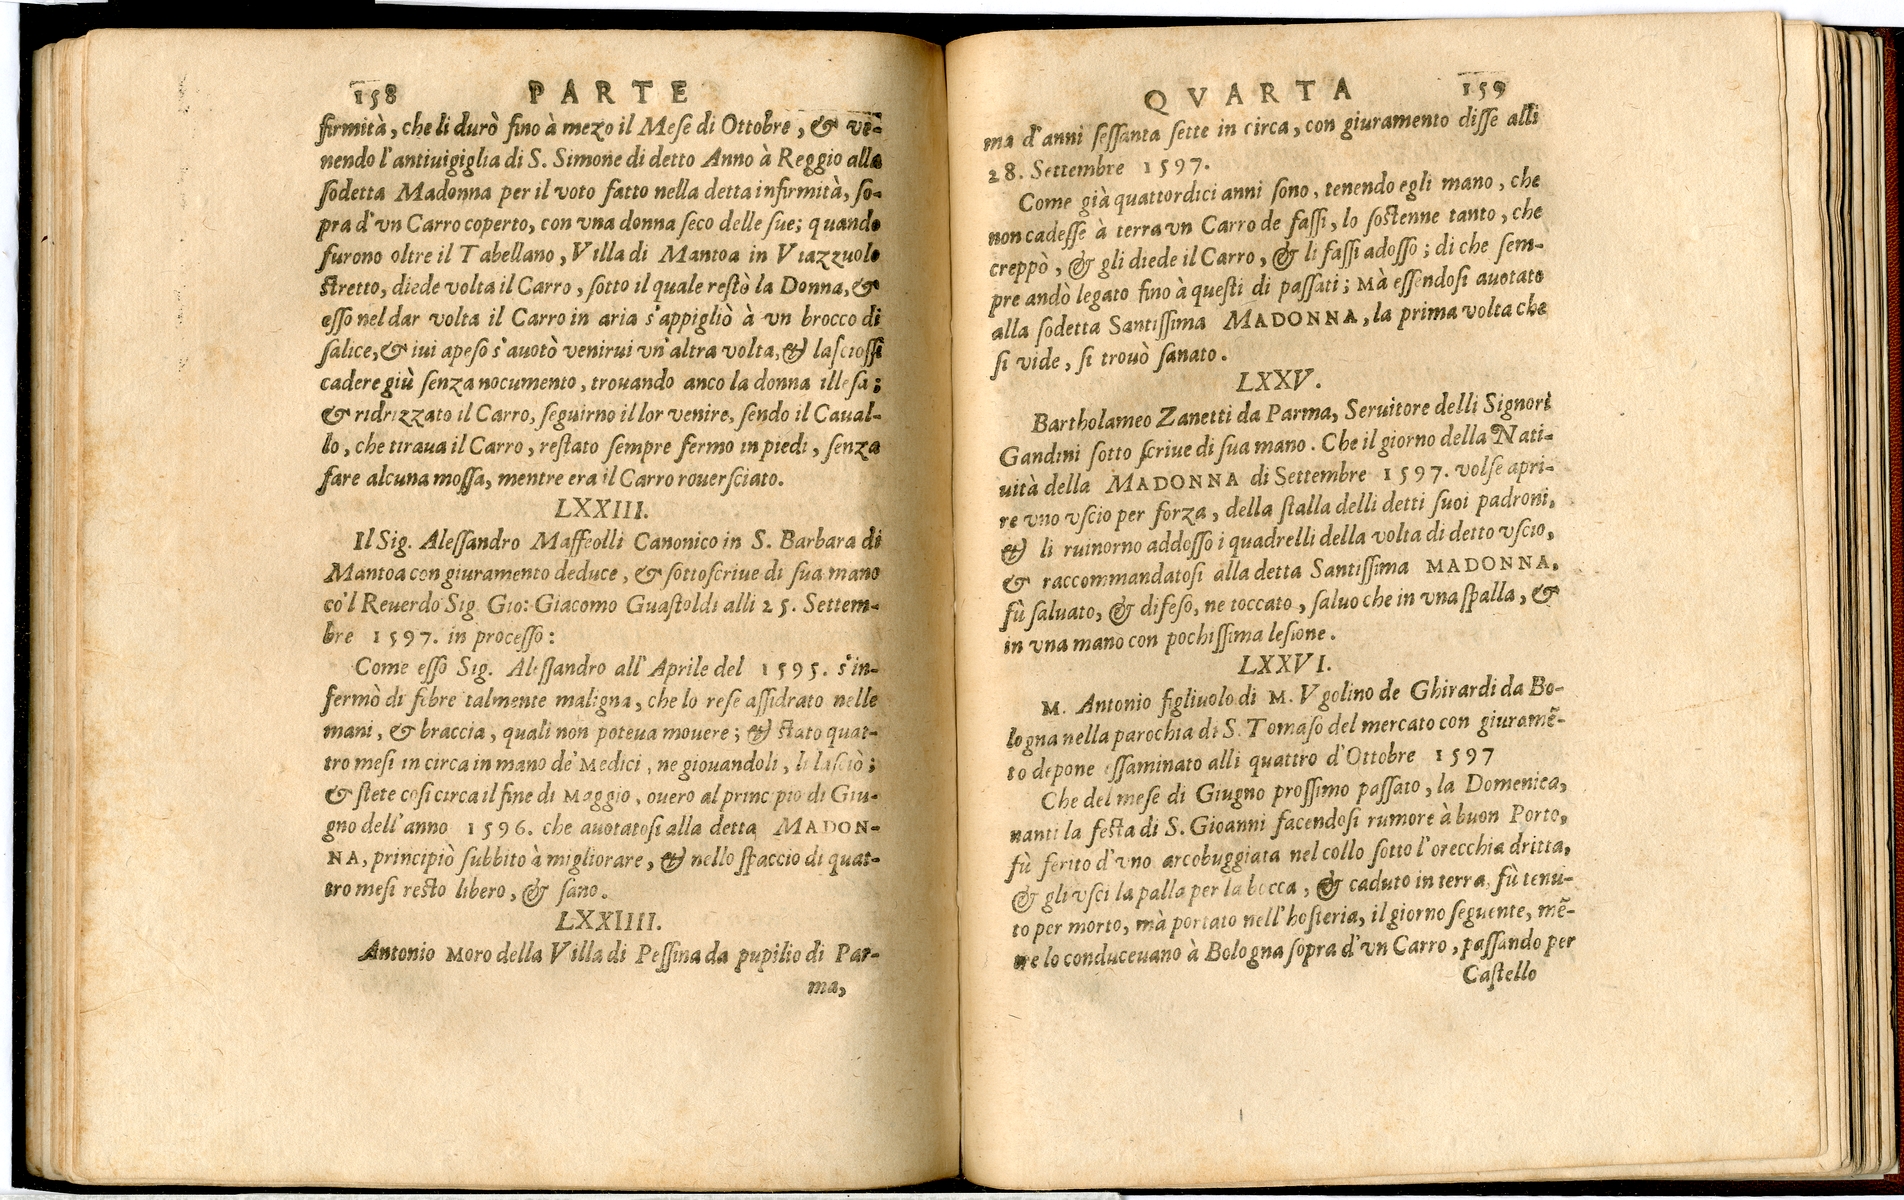 158 PARTE
firmità, che li durò fino à mezo il Mese di Ottobre, & vē-
nendo l'antiuigiglia di S. Simone di detto Anno à Reggio alla
sodetta Madonna per il voto fatto nella detta infirmità, so-
pra d'vn Carro coperto, con vna donna seco delle sue; quando
furono oltre il Tabellano, Villa di Mantoa in Viazzuolo
stretto, diede volta il Carro, sotto il quale restò la Donna, &
esso nel dar volta il Carro in aria s'appigliò à vn brocco di
salice, & iui apeso s'auotò venirui vn'altra volta, & lasciossi
cadere giù senza nocumento, trouando anco la donna illesa;
& ridrizzato il Carro, seguirno il lor venire, sendo il Caual-
lo, che tiraua il Carro, restato sempre fermo in piedi, senza
fare alcuna mossa, mentre era il Carro rouersciato.
LXXIII.
Il Sig. Alessandro Maffeolli Canonico in S. Barbara di
Mantoa con giuramento deduce, & sottoscriue di sua mano
co'l Reuerdo Sig. Gio: Giacomo Guastoldi alli 25. Settem-
bre 1597. in processo:
Come esso Sig. Alessandro all'Aprile del 1595. s'in-
fermò di fibre talmente maligna, che lo rese assidrato nelle
mani, & braccia, quali non poteua mouere; & stato quat-
tro mesi in circa in mano de' Medici, ne giouandoli, li lasciò;
& stete cosi circa il fine di Maggio, ouero al principio di Giu-
gno dell'anno 1596. che auotatosi alla detta MADON-
NA, principiò subbito à migliorare, & nello spaccio di quat-
tro mesi resto libero, & sano.
LXXIIII.
Antonio Moro della Villa di Pessina da pupilio di Par-
ma,
QVARTA 159
ma d'anni sessanta sette in circa, con giuramento disse alli
28. Settembre 1597.
Come già quattordici anni sono, tenendo egli mano, che
non cadesse à terra vn Carro de fassi, lo sostenne tanto, che
creppò, & gli diede il Carro, & li fassi adosso; di che sem-
pre andò legato fino à questi di passati; Mà essendosi auotato
alla sodetta Santissima MADONNA, la prima volta che
si vide, si trouò sanato.
LXXV.
Bartholameo Zanetti da Parma, Seruitore delli Signori
Gandini sotto scriue di sua mano. Che il giorno della Nati-
uità della MADONNA di Settembre 1597. volse apri-
re vno vscio per forza, della stalla delli detti suoi padroni,
& li ruinorno addosso i quadrelli della volta di detto vscio,
& raccommandatosi alla detta Santissima MADONNA,
fù saluato, & difeso, ne toccato, saluo che in vna spalla, &
in vna mano con pochissima lesione.
LXXVI.
M. Antonio figliuolo di M. Vgolino de Ghirardi da Bo-
logna nella parochia di S. Tomaso del mercato con giuramē-
to depone essaminato alli quattro d'Ottobre 1597
Che del mese di Giugno prossimo passato, la Domenica,
nanti la festa di S. Gioanni facendosi rumore à buon Porto,
fù ferito d'vno arcobuggiata nel collo sotto l'orecchia dritta,
& gli vscì la palla per la bocca, & caduto in terra, fù tenu-
to per morto, mà portato nell'hosteria, il giorno seguente, mē-
tre lo conduceuano à Bologna sopra d'vn Carro, passando per
Castello